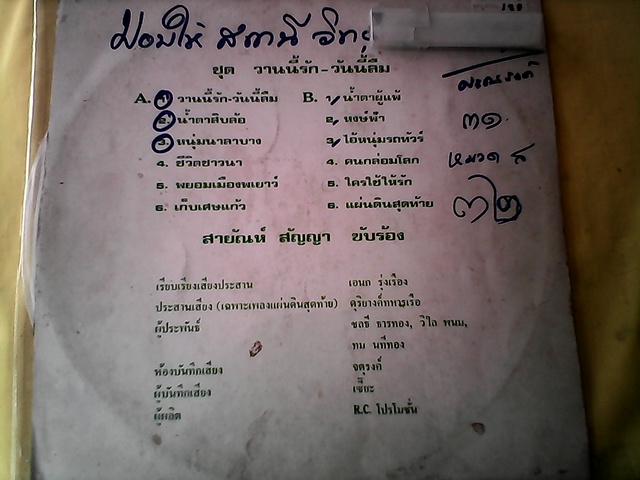 มอบให้ สถานี วิทยุ
ชุด วานนี้รัก-วันนี้ลืม
A. 1. วานนี้รัก-วันนี้ลืม
2. น้ำตาสิบล้อ
3. หนุ่มนาลาบาง
4. ชีวิตชาวนา
5. พยอมเมืองพเยาว์
6. เก็บเศษแก้ว
B. 1. น้ำตาผู้แพ้
2. หงษ์ฟ้า
3. ไอ้หนุ่มรถทัวร์
4. คนกล่อมโลก
5. ใครใช้ให้รัก
6. แผ่นดินสุดท้าย
๓๑.
หมวด ส
๓๒
สายัณห์ สัญญา ขับร้อง
เรียบเรียงเสียงประสาน เอนก รุ่งเรือง
ประสานเสียง (เฉพาะเพลงแผ่นดินสุดท้าย) ดุริยางค์ทหารเรือ
ผู้ประพันธ์ ชลธี ธารทอง, วิไล พนม,
ทม นทีทอง
ห้องบันทึกเสียง จตุรงค์
ผู้บันทึกเสียง เซี๊ยะ
ผู้ผลิต R.C. โปรโมชั่น